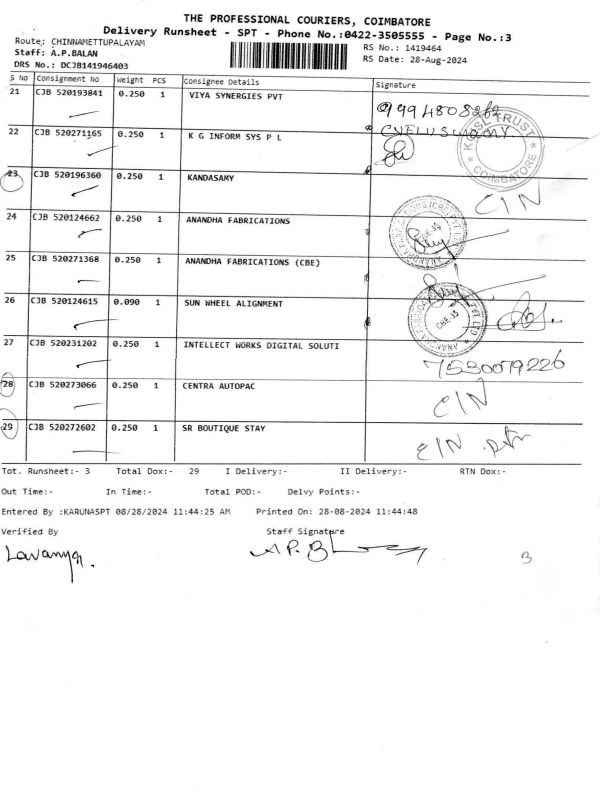 THE PROFESSIONAL COURIERS, COIMBATORE
Delivery Runsheet - SPT - Phone No.:0422-3505555 - Page No.:3
Route: CHINNAMETTUPALAYAM
RS No.: 1419464
Staff: A.P.BALAN
RS Date: 28-Aug-2024
DRS No.: DCJB141946403
S No Consignment No Weight PCS Consignee Details Signature
21 CJB 520193841 0.250 1 VIYA SYNERGIES PVT 9994808262
22 CJB 520271165 0.250 1 K G INFORM SYS P L
TRUST COIMBATORE
23 CJB 520196360 0.250 1 KANDASAMY CIN
24 CJB 520124662 0.250 1 ANANDHA FABRICATIONS
25 CJB 520271368 0.250 1 ANANDHA FABRICATIONS (CBE)
26 CJB 520124615 0.090 1 SUN WHEEL ALIGNMENT
27 CJB 520231202 0.250 1 INTELLECT WORKS DIGITAL SOLUTI 7530079226
28 CJB 520273066 0.250 1 CENTRA AUTOPAC CIN
29 CJB 520272602 0.250 1 SR BOUTIQUE STAY CIN
Tot. Runsheet:- 3 Total Dox:- 29 I Delivery:- II Delivery:- RTN Dox:-
Out Time:- In Time:- Total POD:- Delvy Points:-
Entered By :KARUNASPT 08/28/2024 11:44:25 AM Printed On: 28-08-2024 11:44:48
Verified By Staff Signature
Lavanya. A.P. B
3